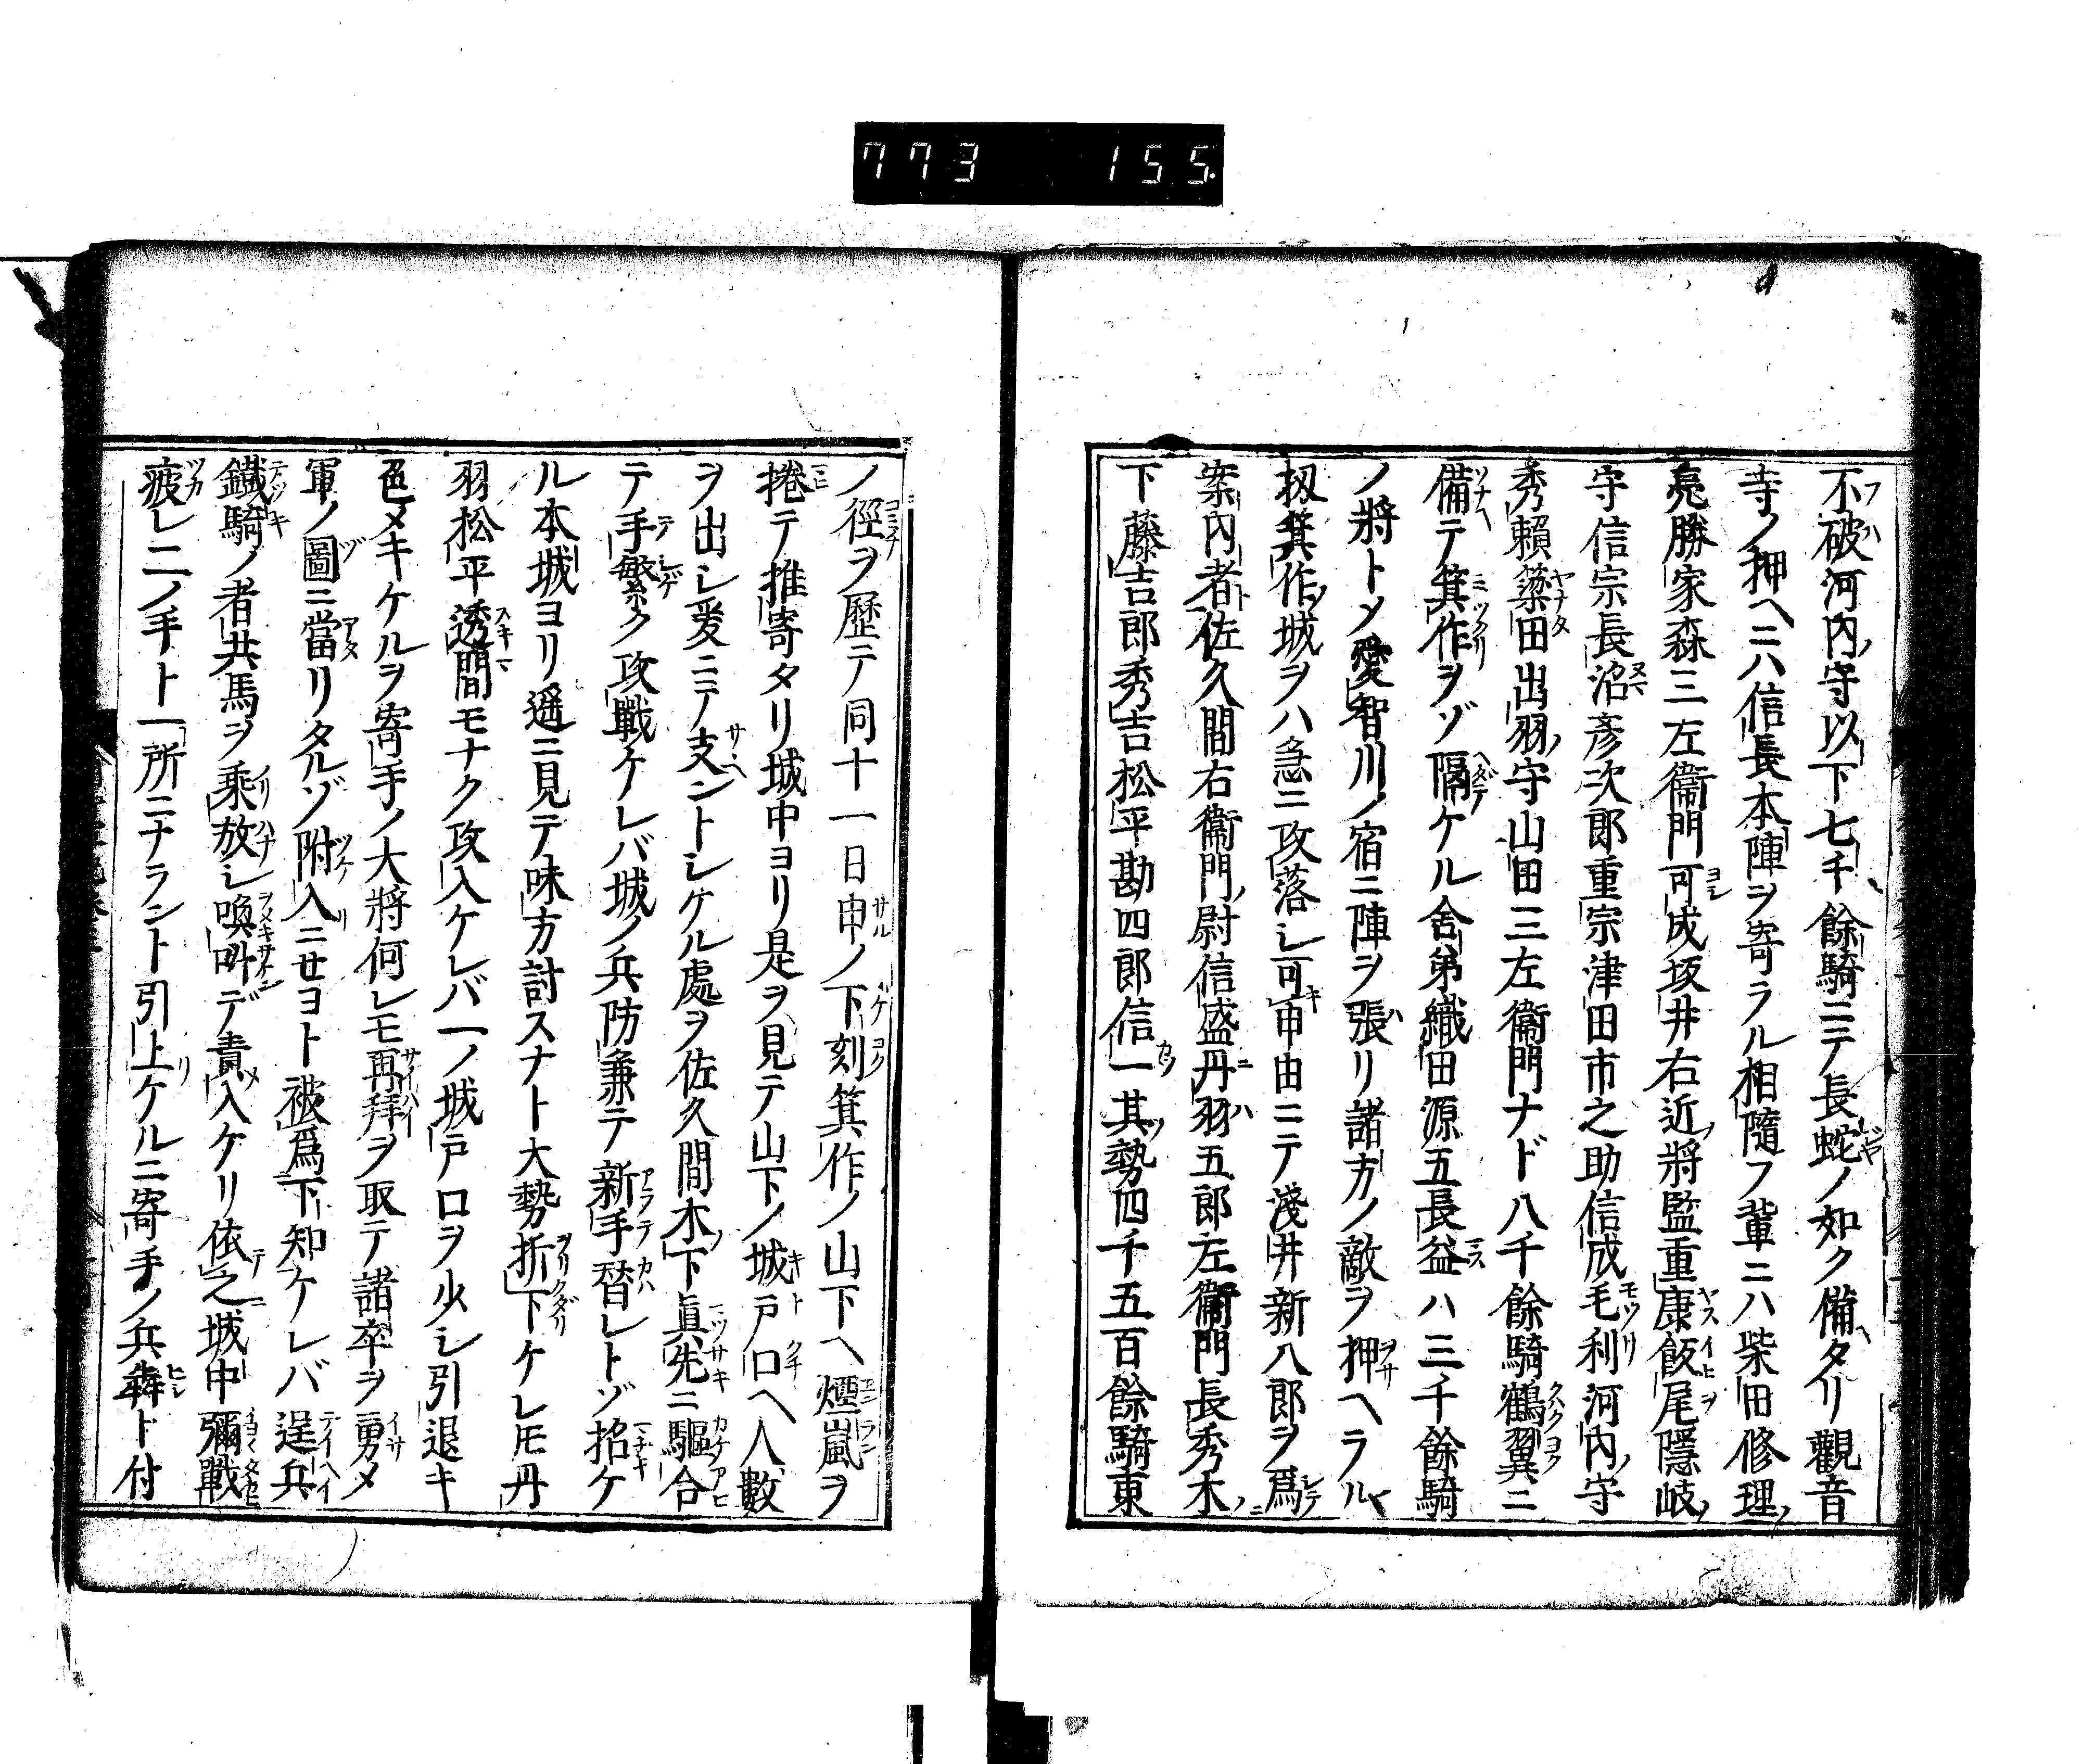 773 155
不破河内守以下七千餘騎ニテ長蛇ノ如ク備タリ觀音
寺ノ押ヘニハ信長本陣ヲ寄ラル相隨フ輩ニハ柴田修理
亮勝家森三左衞門可成坂井右近將監重康飯尾隱岐
守信宗長沼彥次郎重宗津田市之助信成毛利河内守
秀賴簗田出羽守山田三左衞門ナド八千餘騎鶴翼ニ
備テ箕作ヲゾ隔ケル舍弟織田源五長益ハ三千餘騎
ノ將トメ愛智川ノ宿ニ陣ヲ張リ諸方ノ敵ヲ押ヘラル
扨箕作城ヲハ急ニ攻落シ可申由ニテ淺井新八郎ヲ爲
案内者佐久間右衞門尉信盛丹羽五郎左衞門長秀木
下藤吉郎秀吉松平勘四郎信一其勢四千五百餘騎東
ノ徑ヲ歷テ同十一日申ノ下刻箕作ノ山下ヘ煙嵐ヲ
捲テ推寄タリ城中ヨリ是ヲ見テ山下ノ城戸口ヘ人數
ヲ出シ爰ニテ支ントシケル處ヲ佐久間木下眞先ニ驅合
テ手繁ク攻戰ケレバ城ノ兵防兼テ新手替レトゾ招ケ
ル本城ヨリ遥ニ見テ味方討スナト大勢折下ケレ𪜈丹
羽松平透間モナク攻入ケレバ一ノ城戸口ヲ少シ引退キ
色メキケルヲ寄手ノ大將何レモ再拜ヲ取テ諸卒ヲ勇メ
軍ノ圖ニ當リタルゾ附入ニセヨト被爲下知ケレバ逞兵
鐵騎ノ者共馬ヲ乘放シ喚叫デ責入ケリ依之城中彌戰
疲レ二ノ手ト一所ニナラント引上ケルニ寄手ノ兵犇ト付